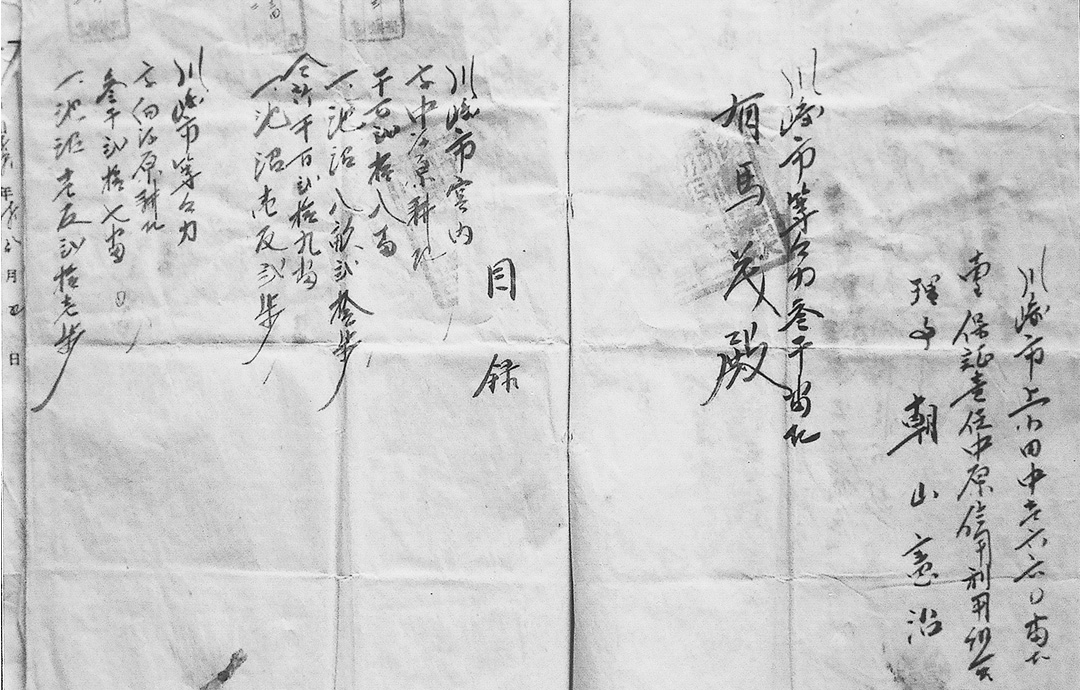 川崎市上小田中壱六六〇番地
保証責任中原信用利用組合
理事 朝山憲治
川崎市等々力参千番地
有馬茂殿
目録
川崎市宮内
字中河原耕地
千百弐拾八番
一、池沼八畝弐拾歩
仝所千百弐拾九番
一、池沼壱反弐歩
川崎市等々力
字向河原耕地
参千弐拾七番
一、池沼壱反弐拾壱歩
年 月 日